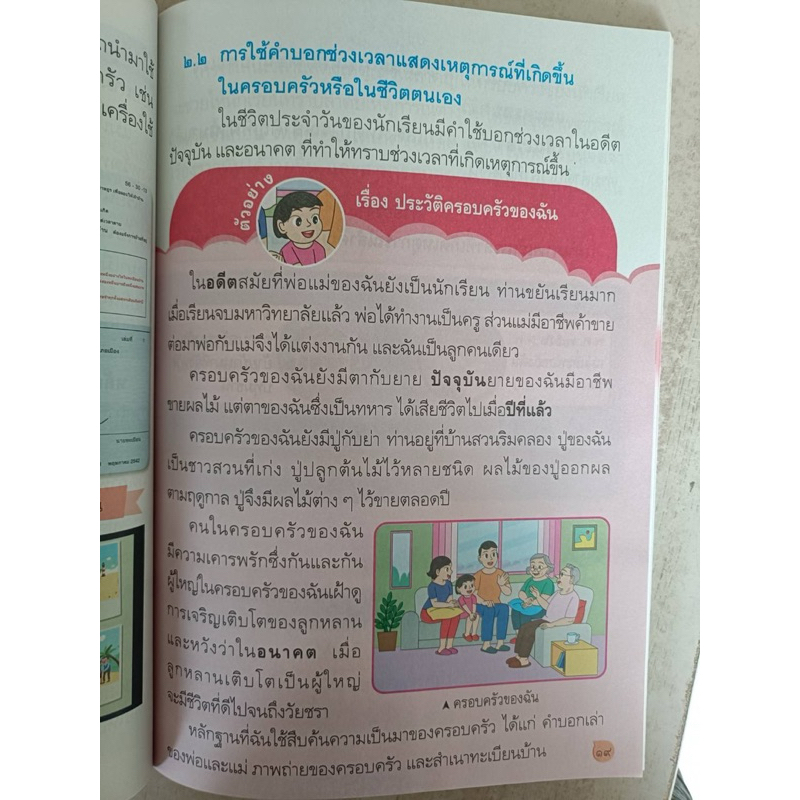 ดนำมาใช้
รัว เช่น
เครื่องใช้
๒.๒ การใช้คำบอกช่วงเวลาแสดงเหตุการณ์ที่เกิดขึ้น
ในครอบครัวหรือในชีวิตตนเอง
ในชีวิตประจำวันของนักเรียนมีคำใช้บอกช่วงเวลาในอดีต
ปัจจุบัน และอนาคต ที่ทำให้ทราบช่วงเวลาที่เกิดเหตุการณ์ขึ้น
ตัวอย่าง
เรื่อง ประวัติครอบครัวของฉัน
ในอดีตสมัยที่พ่อแม่ของฉันยังเป็นนักเรียน ท่านขยันเรียนมาก
เมื่อเรียนจบมหาวิทยาลัยแล้ว พ่อได้ทำงานเป็นครู ส่วนแม่มีอาชีพค้าขาย
ต่อมาพ่อกับแม่จึงได้แต่งงานกัน และฉันเป็นลูกคนเดียว
ครอบครัวของฉันยังมีตากับยาย ปัจจุบันยายของฉันมีอาชีพ
ขายผลไม้ แต่ตาของฉันซึ่งเป็นทหาร ได้เสียชีวิตไปเมื่อปีที่แล้ว
ครอบครัวของฉันยังมีปู่กับย่า ท่านอยู่ที่บ้านสวนริมคลอง ปู่ของฉัน
เป็นชาวสวนที่เก่ง ปู่ปลูกต้นไม้ไว้หลายชนิด ผลไม้ของปู่ออกผล
ตามฤดูกาล ปู่จึงมีผลไม้ต่าง ๆ ไว้ขายตลอดปี
คนในครอบครัวของฉัน
มีความเคารพรักซึ่งกันและกัน
ผู้ใหญ่ในครอบครัวของฉันเฝ้าดู
การเจริญเติบโตของลูกหลาน
และหวังว่าในอนาคต เมื่อ
ลูกหลานเติบโตเป็นผู้ใหญ่
จะมีชีวิตที่ดีไปจนถึงวัยชรา
▲ ครอบครัวของฉัน
หลักฐานที่ฉันใช้สืบค้นความเป็นมาของครอบครัว ได้แก่ คำบอกเล่า
ของพ่อและแม่ ภาพถ่ายของครอบครัว และสำเนาทะเบียนบ้าน
๑๙